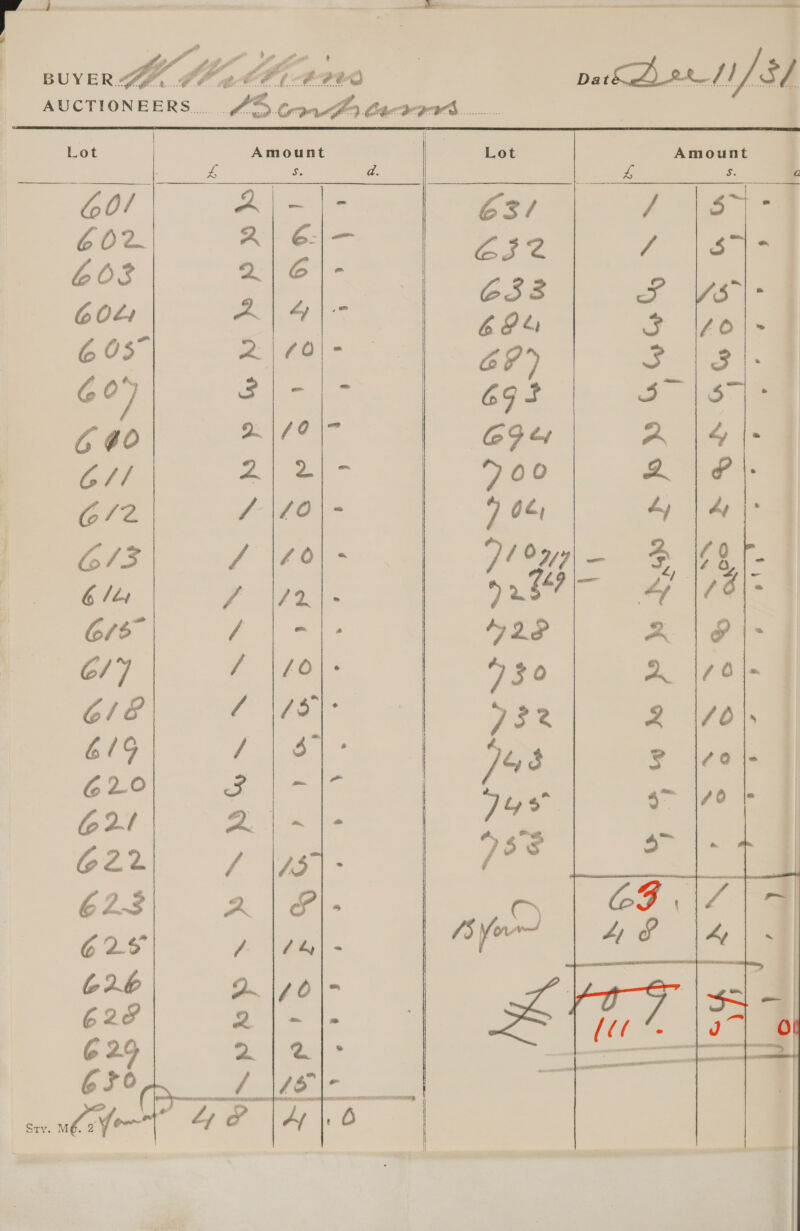 BUYER W. Williams Date Dec 11/31
AUCTIONEERS
Lot Amount Lot Amount
£ s. d. £ s. d
601 2 - -
602 2 6 -
603 2 6 -
604 2 4 -
605 2 10 -
607 3 - -
610 2 10 -
611 2 2 -
612 1 10 -
613 1 10 -
614 1 12 -
615 1 - -
617 1 10 -
618 1 15 -
619 1 5 -
620 3 - -
621 2 - -
622 1 15 -
623 2 8 -
625 1 14 -
626 2 10 -
628 2 - -
629 2 2 -
630 1 15 -
Sty. M6. 2 48 4 0
631 1 5 -
632 1 5 -
633 8 15 -
684 3 10 -
687 3 3 -
693 5 5 -
694 2 4 -
700 2 8 -
704 4 4 -
710 - 3 10 -
725 - 4
728 2 8 -
730 2 10 -
732 2 10 -
743 3 10 -
745 5 10 -
753 5 - -
63 . 1 -
48 4 -
£ 5 -
111 - 5 0